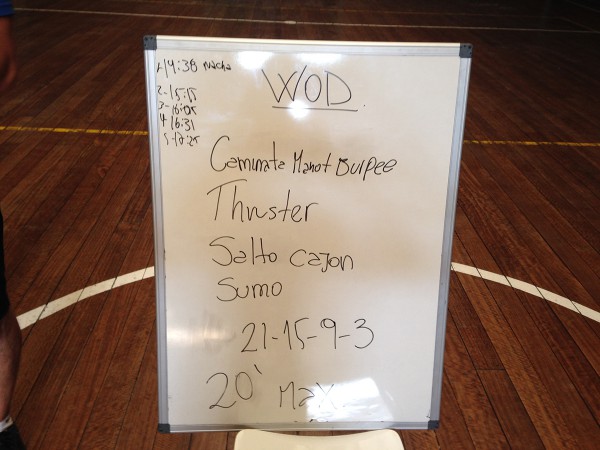 1-14:38 nacha
2-15:15
3-16:05
4 16:31
5-17:25
WOD
Caminata Manot Burpee
Thruster
Salto cajon
Sumo
21-15-9-3
20' max.